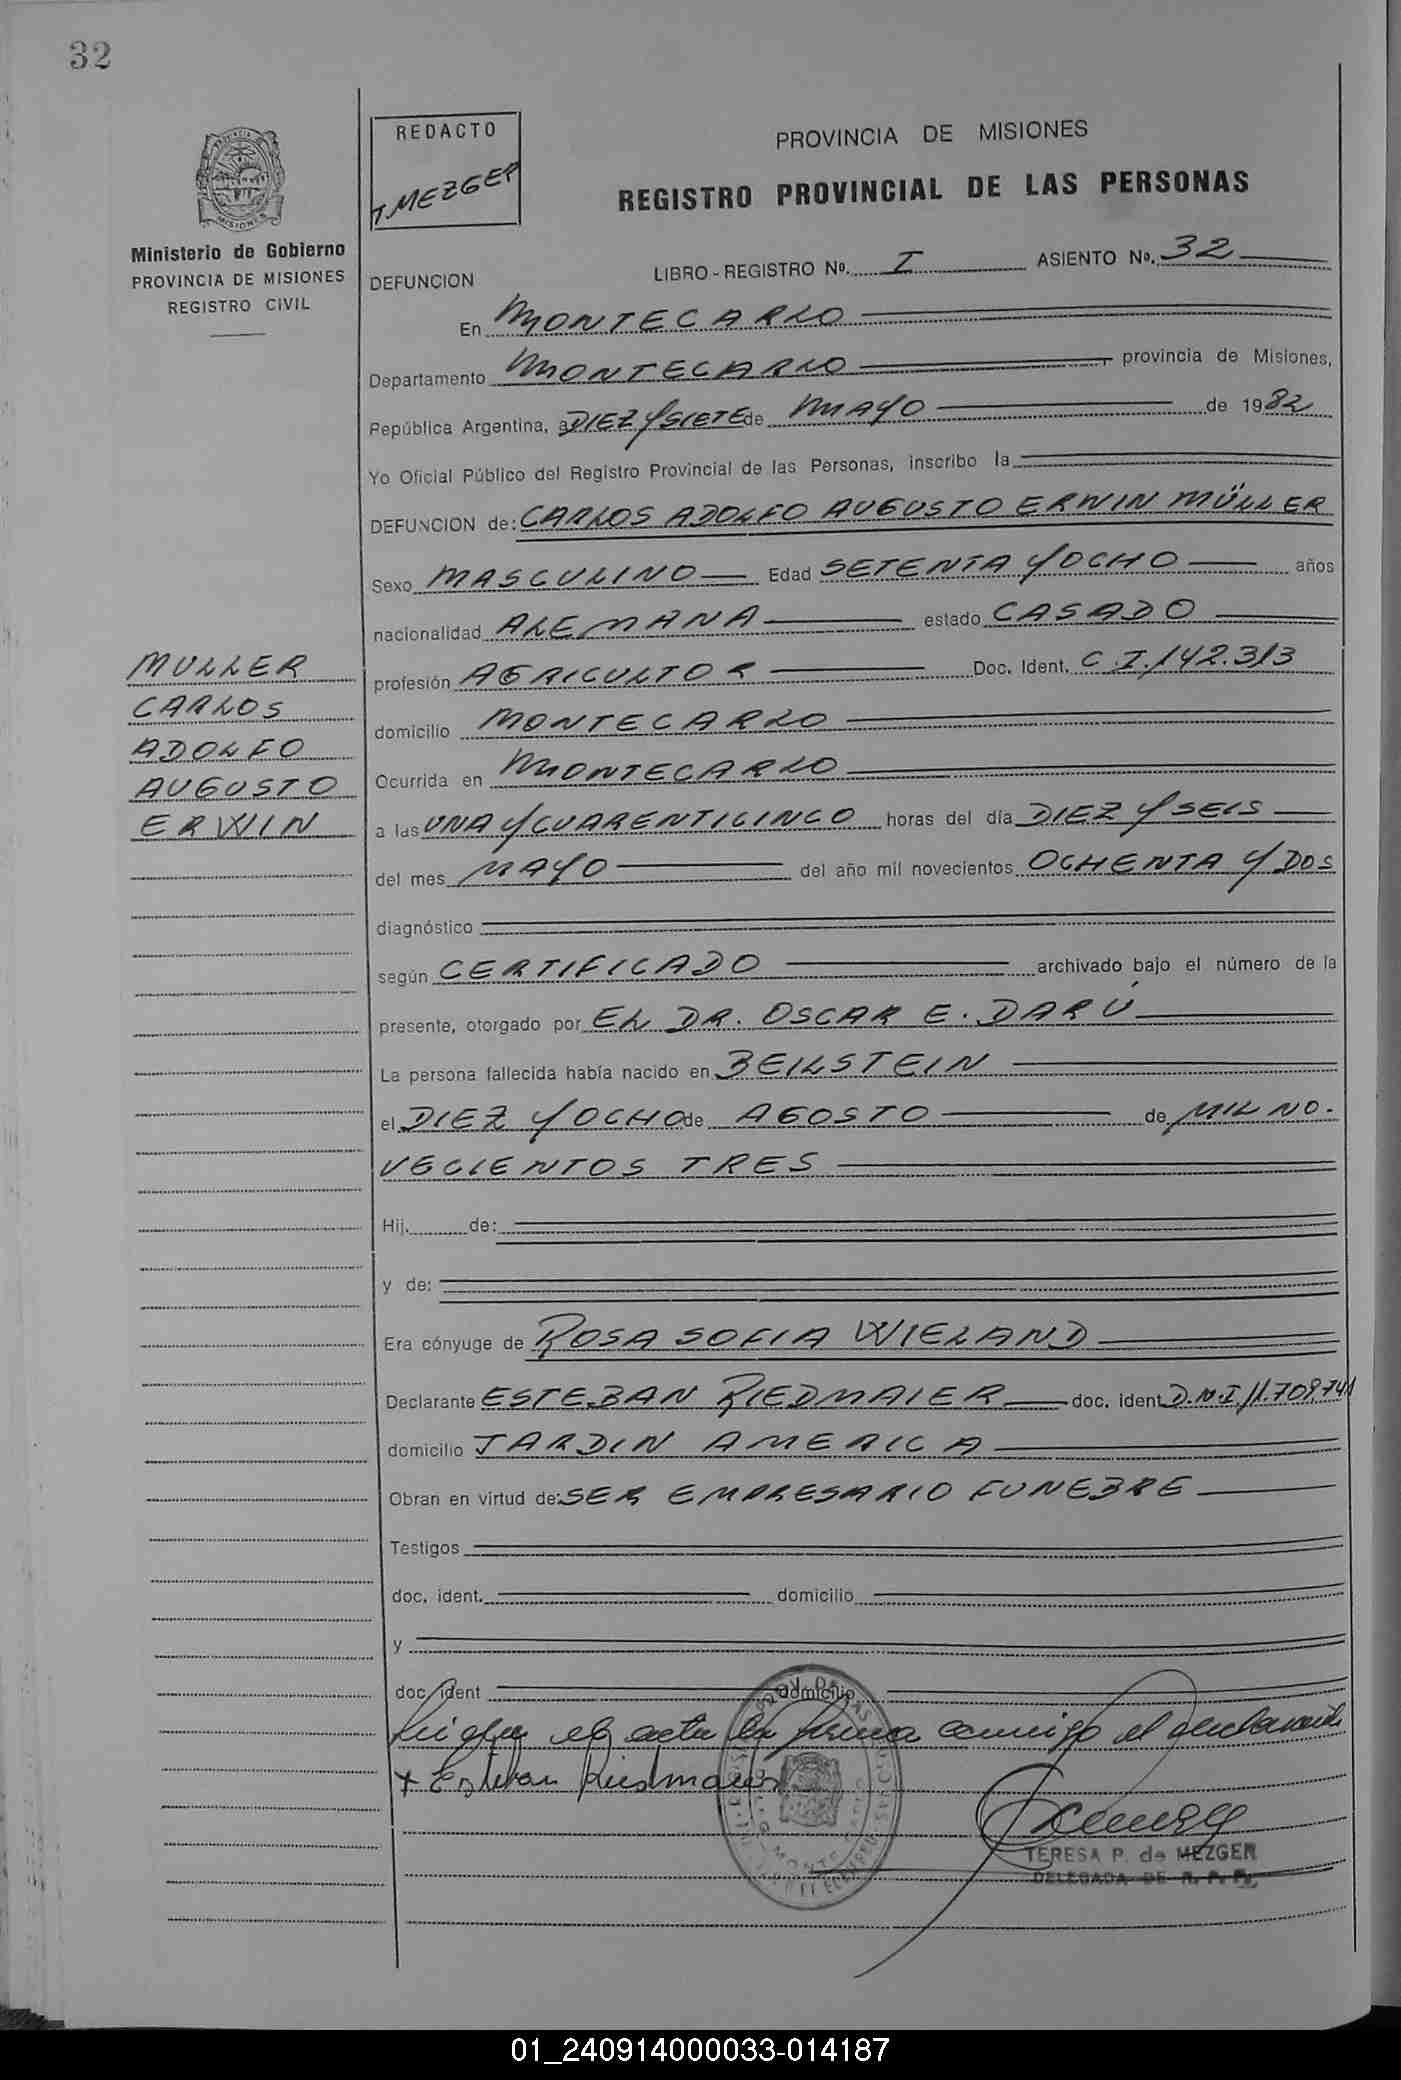 32
REDACTO
T. MEZGER
PROVINCIA DE MISIONES
REGISTRO PROVINCIAL DE LAS PERSONAS
Ministerio de Gobierno
PROVINCIA DE MISIONES
REGISTRO CIVIL
DEFUNCION LIBRO-REGISTRO No. I ASIENTO No. 32
En MONTECARLO
Departamento MONTECARLO, provincia de Misiones,
República Argentina, a DIEZ Y SIETE de MAYO de 1982
Yo Oficial Público del Registro Provincial de las Personas, inscribo la
DEFUNCION de: CARLOS ADOLFO AUGUSTO ERWIN MÜLLER
Sexo MASCULINO Edad SETENTA Y OCHO años
nacionalidad ALEMANA estado CASADO
profesión AGRICULTOR Doc. Ident. C.I. 142.313
domicilio MONTECARLO
Ocurrida en MONTECARLO
a las UNA Y CUARENTICINCO horas del día DIEZ Y SEIS
del mes MAYO del año mil novecientos OCHENTA Y DOS
diagnóstico
según CERTIFICADO archivado bajo el número de la
presente, otorgado por EL DR. OSCAR E. DARÚ
La persona fallecida había nacido en BEILSTEIN
el DIEZ Y OCHO de AGOSTO de MIL NO.
VECIENTOS TRES
Hij. de:
y de:
Era cónyuge de ROSA SOFIA WIELAND
Declarante ESTEBAN RIEDMAIER doc. ident D.N.I. 11.709.741
domicilio JARDIN AMERICA
Obran en virtud de: SER EMPRESARIO FUNEBRE
Testigos
doc. ident. domicilio
y
doc. ident domicilio
el acta la firma conmigo el declarante
+ Esteban Riedmaier
TERESA P. de MEZGER
DELEGADA DE R. P. P.
MULLER
CARLOS
ADOLFO
AUGUSTO
ERWIN
01_240914000033-014187